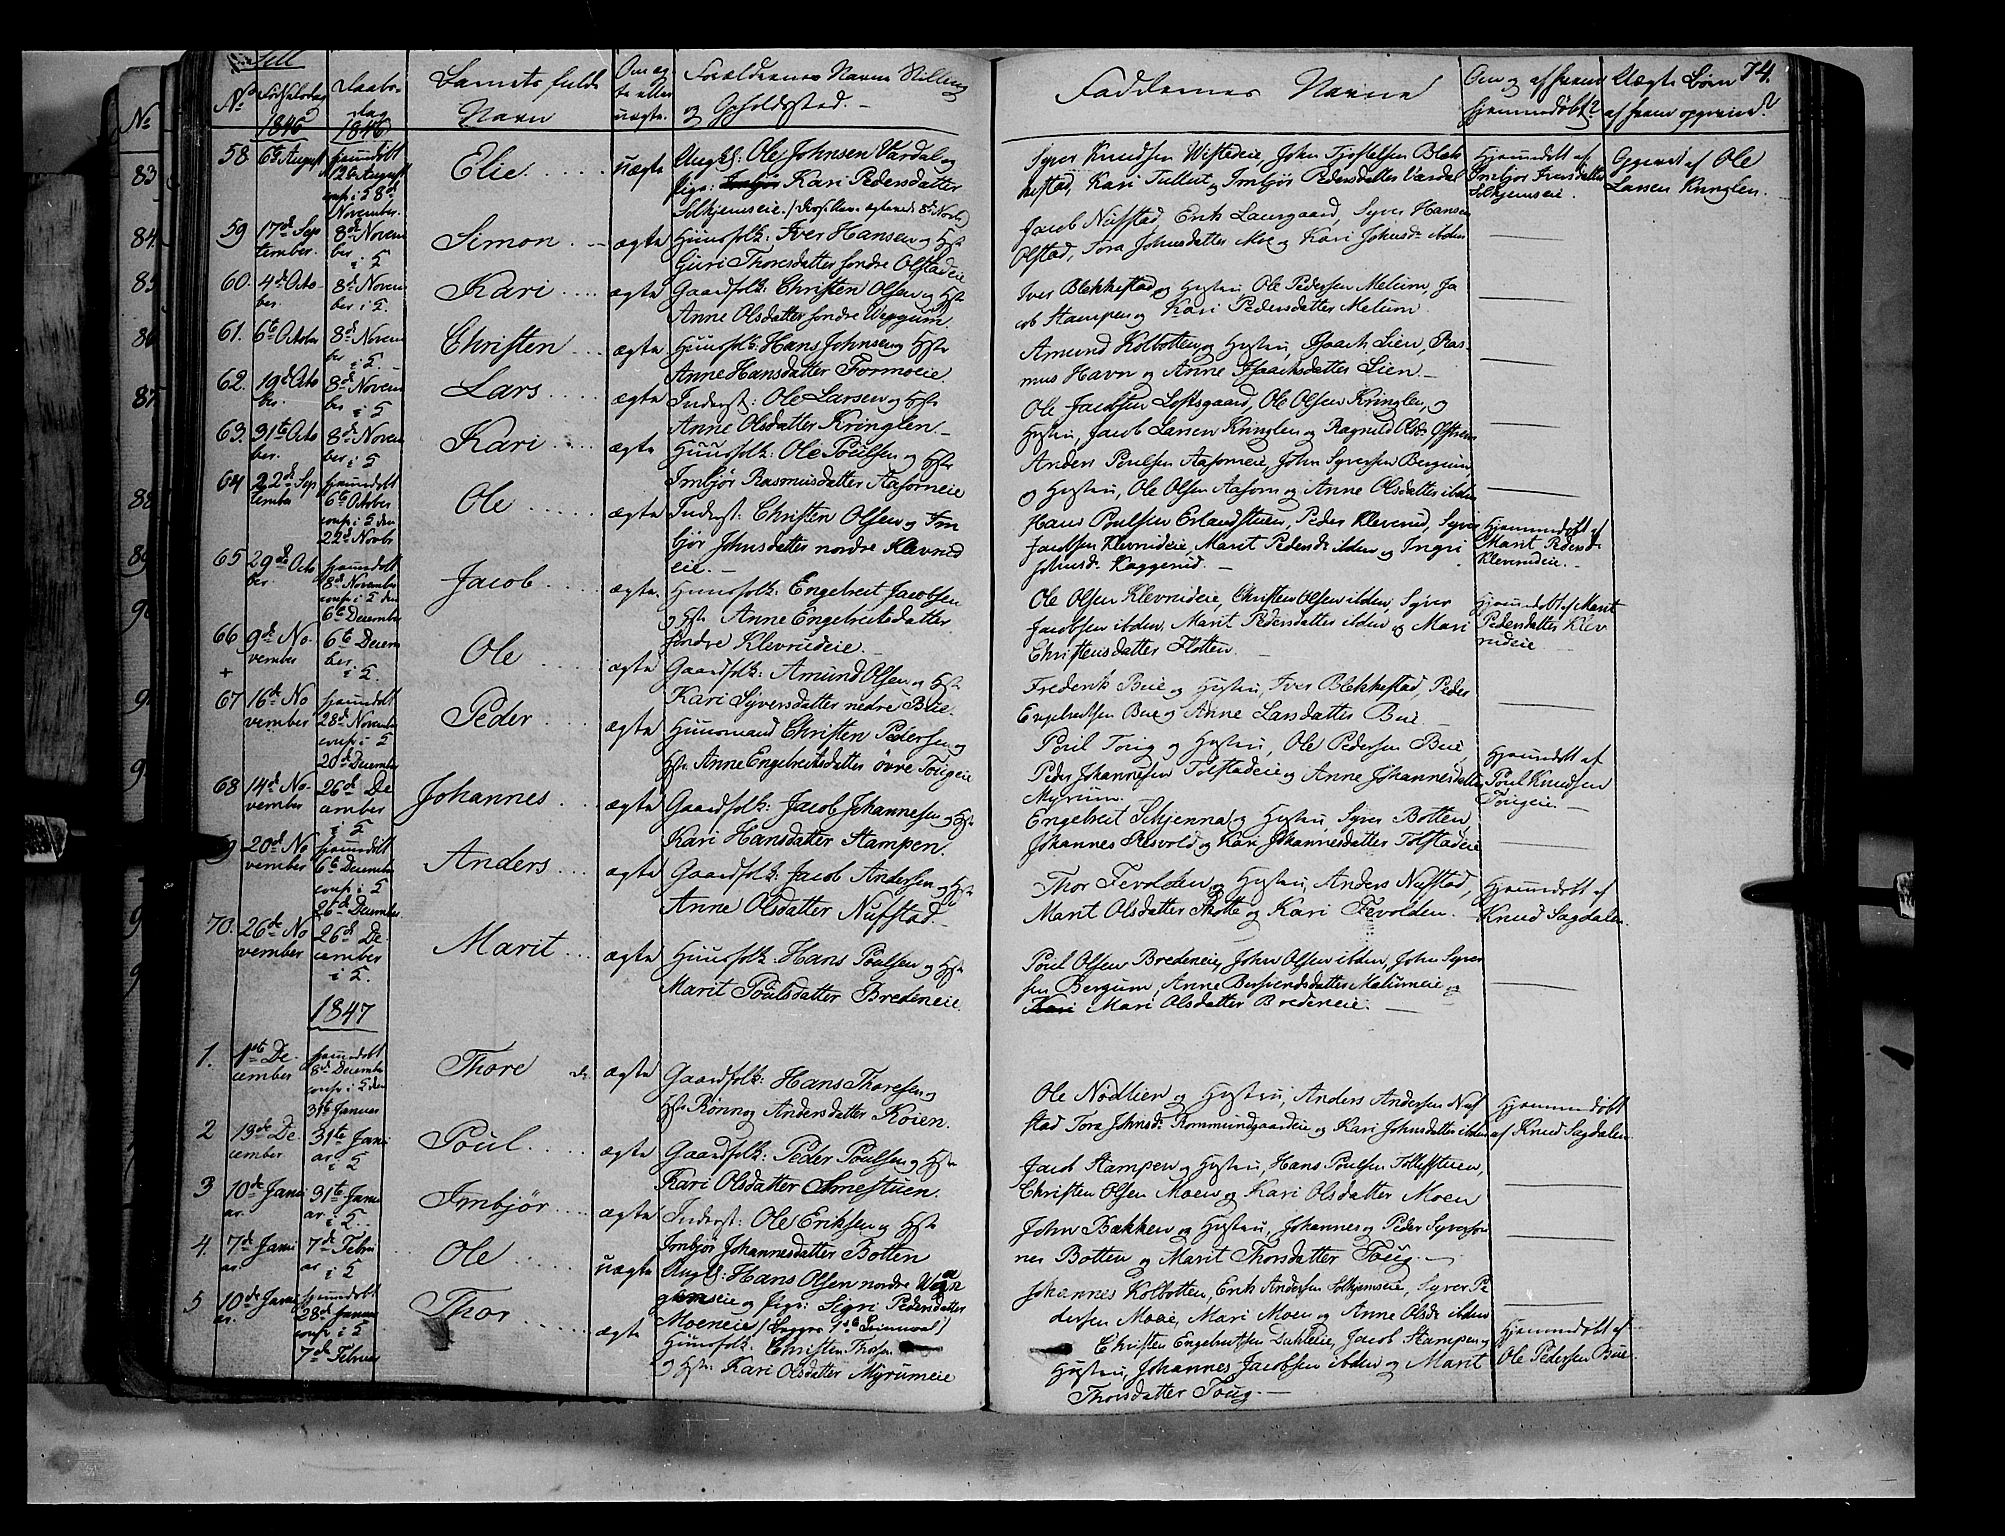 Sell 74.
No No Fødselsdag 1846 Daabsdag 1846 Barnets fulde Navn Om ægte eller uægte. Forældrenes Navn Stilling og Opholdssted. Faddernes Navne Om og af hvem hjemmedøbt? Uægte Børn af hvem opgivne?
58. 6te August hjemmedøbt 12te August conf. i 8de November. Elie. uægte Ungk: Ole Johnsen Vardal og
Pige: Kari Pedersdatter
Solhjemseie.
Syver Knudsen John Tjostelsen Blek-
kestad, Kari og Imbjør Pedersdatter Vardal
Hjemmedøbt af
Imbjør
Solhjemseie.
Opgivet af Ole
Larsen Kringlen.
59 17de September. 8de November i S Simon ægte Huusfolk: Iver Hansen og Hstr
Guri Thoresdatter søndre Olstadeie
Jacob Nufstad, Erik Laurgaard, Syver Hansen
Olstad, Tora Johnsdatter Moe og Kari Johnsdr ibden
60. 4de October. 8de November i S. Kari ægte Gaardfolk: Christen Olsen og Hstr
Anne Olsdatter søndre Weggum.
Iver Blekkestad og Hustru, Ole Pedersen Melum, Ja-
cob Stampen og Kari Pedersdatter Melum.
61. 6te October 8de November i S. Christen ægte Huusfolk: Hans Johnsen og Hstr
Anne Hansdatter Formoeie.
Amund Kolbotten og Hustru, Isaach Lien, Ras-
mus Havn og Anne Isaachsdatter Lien.
62. 19de October. 8de November i S Lars ægte Inderst: Ole Larsen og Hstr
Anne Olsdatter Kringlen
Ole Jacobsen Loftsgaard, Ole Olsen Kringlen, og
Hustru, Jacob Larsen Kringlen og Ragnild Olsdr
63. 31te October. 8de November i S Kari ægte Huusfolk: Ole Poulsen og Hstr
Imbjør Rasmusdatter Aasorneie
Anders Poulsen Aasorneie, John Syversen Bergum
og Hustru, Ole Olsen Aasorn og Anne Olsdatter ibden
64 22de September hjemmedøbt 6te October conf. i S den 22de Novbr Ole ægte Inderst: Christen Olsen og Im-
bjør Johnsdatter nordre Klevrud
eie.
Hans Poulsen Erlandstuen, Peder Kleverud, Syver
Jacobsen Klevrudeie, Marit Pedersdr ibden og Ingri
Johnsdr Kaggerud.
Hjemmedøbt af
Marit Pedersdr
Klevrudeie.
65 29de October. hjemmedøbt 8de November conf. i S den 6te December Jacob ægte Huusfolk: Engebret Jacobsen
og Hstr Anne Engebretsdatter
søndre Klevrudeie
Ole Olsen Klevrudeie, Christen Olsen ibden, Syver
Jacobsen ibden, Marit Pedersdatter ibden og Mari
Christensdatter Slotten.
Hjemmedøbt af Marit
Pedersdatter Klev-
rudeie
66 + 9de November 6te December. i S Ole ægte Gaardfolk: Amund Olsen og Hstr
Kari Syversdatter nedre Bue.
Frederik Bue og Hustru, Iver Blekkestad, Peder
Engebretsen Bue og Anne Larsdatter Bue
67 16de November hjemmedøbt 28de November conf. i S 20de December Peder ægte Huusmand Christen Pedersen og
Hstr Anne Engebretsdatter øvre Tougeie
Poul Toug og Hustru, Ole Pedersen Bue,
Peder Johannesen Tolstadeie og Anne Johannesdatter
Myrum.
Hjemmedøbt af
Poul Knudsen
Tougeie
68 14de November 26de December i S Johannes ægte Gaardfolk: Jacob Johannesen og Hstr
Kari Hansdatter Stampen.
Engebret Skjenna og Hustru, Syver Botten,
Johannes Resvold og Kari Johannesdatter Tolstadeie
69 20de November hjemmedøbt 6te December conf. i S 26de December Anders ægte Gaardfolk: Jacob Andersen og Hstr
Anne Olsdatter Nufstad.
Thor Fevolden og Hustru, Anders Nufstad,
Marit Olsdatter Skotte og Kari Fevolden.
Hjemmedøbt af
Knud Sagdalen.
70. 26de November 26de December i S. Marit ægte Huusfolk: Hans Poulsen og Hstr
Marit Poulsdatter Bredeneie.
Poul Olsen Bredeneie, John Olsen ibden, John Syver-
sen Bergum, Anne Melumeie og
Kari Mari Olsdatter Bredeneie.
1847
1. 1ste December hjemmedøbt 8de December conf. i S den 31te Januar Thore ægte Gaardfolk: Hans Thoresen og
Hstr Rønnog Andersdatter Roien.
Ole Nødlien og Hustru, Anders Andersen Nuf-
stad Tora Johnsdr Rommundgaardeie og Kari Johnsdatter ibden
Hjemmedøbt
af Knud Sagdalen
2 13de December 31te Januar i S Poul. ægte Gaardfolk: Peder Poulsen og Hstr
Kari Olsdatter Arnestuen.
Jacob Stampen og Hustru, Hans Poulsen Tollefstuen,
Christen Olsen Moen og Kari Olsdatter Moen
3 10de Januar. 31te Januar i S. Imbjør ægte Inderst: Ole Eriksen og Hstr
Imbjør Johannesdatter Botten
John Bækken og Hustru, Johannes og Peder Syverson-
nes Botten og Marit Thorsdatter Toug.
4. 7de Januar. 7de Februar i S Ole uægte Ungk: Hans Olsen nordre
og Pige: Sigri Pedersdatter
Moeneie (Begges 1ste Leiermaal)
Johannes Kolbotten, Erik Andersen Solhjemseie, Syver Pe-
dersen Moeie, Mari Moen og Anne Olsdr ibden
5 10de Januar. hjemmedøbt 28de Januar conf. i S 7de Februar Thor ægte Huusfolk: Christen Thorsen
og Hstr: Kari Olsdatter Myrumeie
Christen Engebretsen Dahleie, Jacob Stampen og
Hustru, Johannes Jacobsen ibden og Marit
Thorsdatter Toug.
Hjemmedøbt af
Ole Pedersen Bue.
83
84.
85.
86
87.
88.
89.